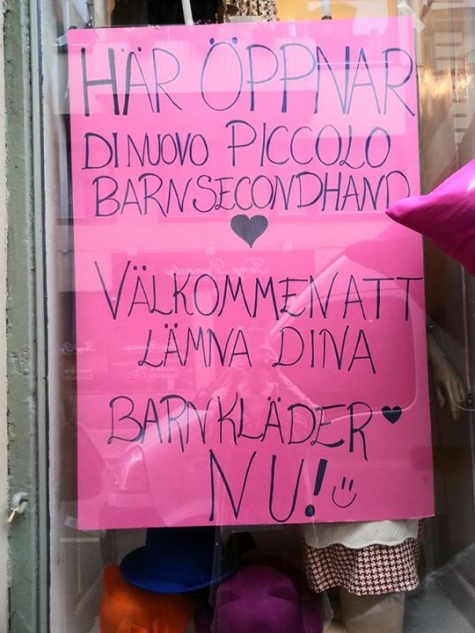 HÄR ÖPPNAR
DI NUOVO PICCOLO
BARNSECONDHAND
VÄLKOMMEN ATT
LÄMNA DINA
BARNKLÄDER
NU!